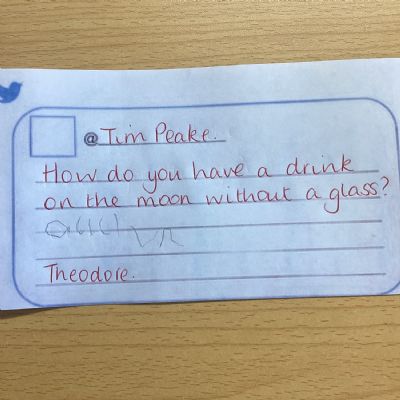 @Tim Peake.
How do you have a drink
on the moon without a glass?
Theodore.